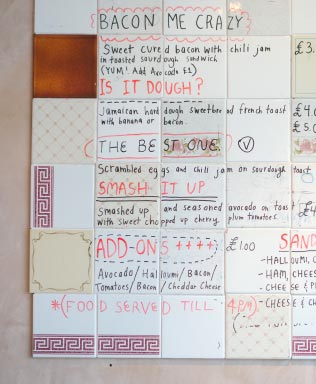 BACON ME CRAZY
Sweet cured bacon with chili jam
in toasted sourdough sandwich
(YUM! Add Avocado £1)
£3.
IS IT DOUGH?
Jamaican hard dough sweetbread french toast
with banana or bacon.
£4.
£5.
THE BEST ONE. V
Scrambled eggs and chili jam on sourdough toast
SMASH IT UP
Smashed up and seasoned avocado on toast
with sweet chopped up cherry plum tomatoes.
ADD-ONS ++++
£1.00
SAND
Avocado/Halloumi/Bacon/
Tomatoes/Bacon/Cheddar Cheese
-HALLOUMI, C
-HAM, CHEESE
-CHEESE & P
-CHEESE & CH
*(FOOD SERVED TILL 4pm)